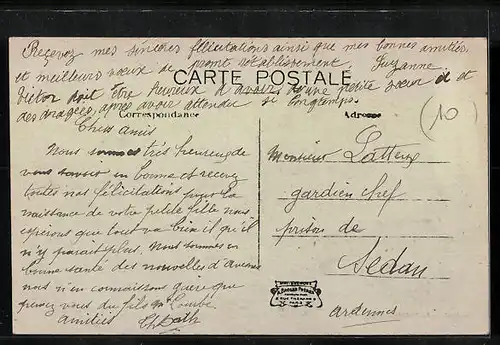 Recevez mes sincères félicitations ainsi que mes bonnes amitiés,
et meilleurs vœux de prompt rétablissement. Suzanne
CARTE POSTALE
Victor doit être heureux d'avoir une petite sœur et
des dragées, après avoir attendu si longtemps.
Correspondance
Adresse
(10)
Chers amis
Nous sommes très heureux de
vous savoir en bonne et recevez
toutes nos félicitations pour la
naissance de votre petite fille nous
espérons que tout va bien et qu'il
n'y paraît plus. Nous sommes en
bonne santé des nouvelles d'
nous n'en connaissons guère que
pensez vous du fils
amitiés
Monsieur Latteux
gardien chef
prison de
Sedan
ardennes